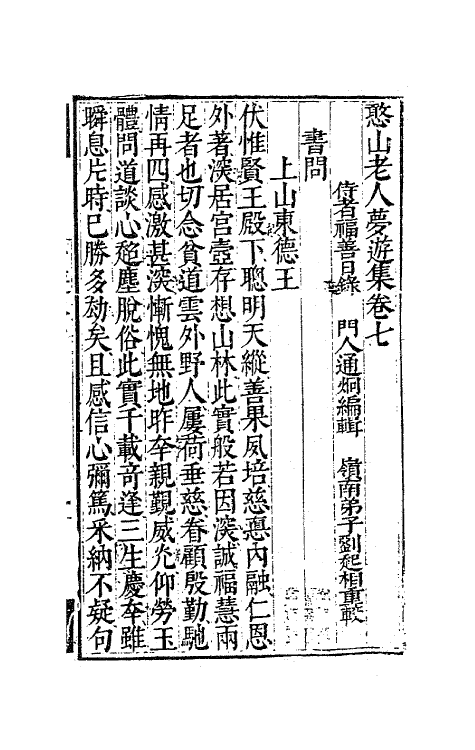 憨山老人夢遊集卷七
侍者福善日錄　門人通炯編輯　嶺南弟子劉起相重較
書問
上山東德王
伏惟賢王殿下聰明天縱善果夙培慈惪內融仁恩
外著深居宮壼存想山林此實般若因深誠福慧兩
足者也切念貧道雲外野人屢荷垂慈眷顧殷勤馳
情再四感激甚深慚愧無地昨幸親覲威光仰勞玉
體問道談心超塵脫俗此實千載奇逢三生慶幸雖
瞬息片時已勝多劫矣且感信心彌篤采納不疑句